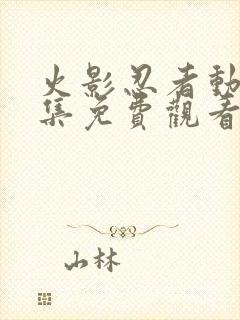 火影忍者動
集免費觀看
山林